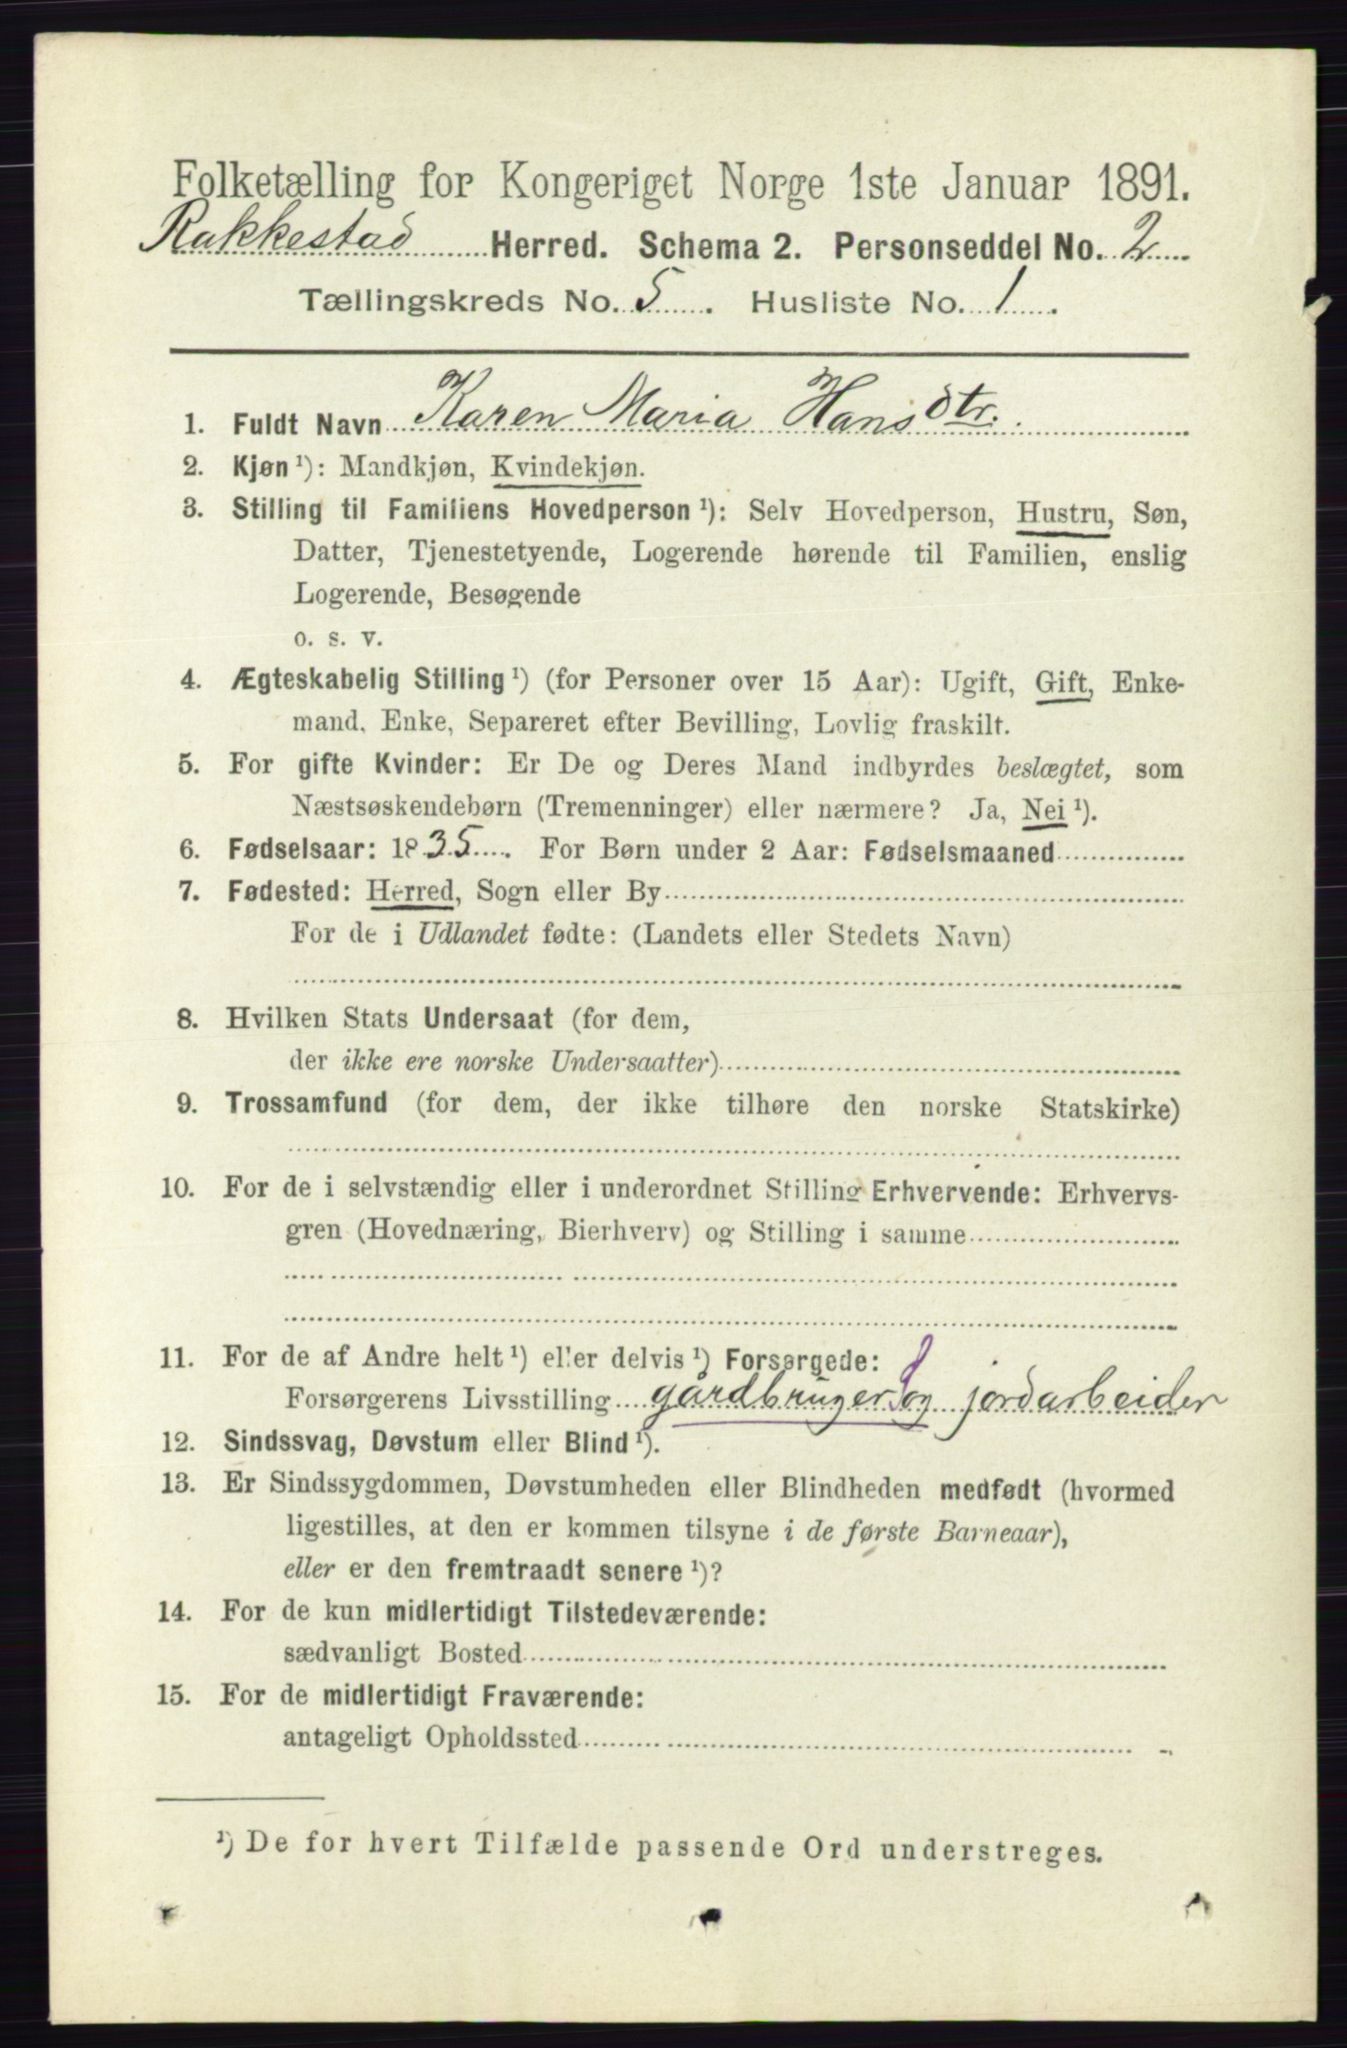 Folketælling for Kongeriget Norge 1ste Januar 1891.
Rakkestad Herred. Schema 2. Personseddel No. 2
Tællingskreds No. 5. Husliste No. 1.
1. Fuldt Navn Karen Maria Hansdtr.
2. Kjøn ¹): Mandkjøn, Kvindekjøn.
3. Stilling til Familiens Hovedperson ¹): Selv Hovedperson, Hustru, Søn,
Datter, Tjenestetyende, Logerende hørende til Familien, enslig
Logerende, Besøgende
o. s. v.
4. Ægteskabelig Stilling ¹) (for Personer over 15 Aar): Ugift, Gift, Enke-
mand, Enke, Separeret efter Bevilling, Lovlig fraskilt.
5. For gifte Kvinder: Er De og Deres Mand indbyrdes beslægtet, som
Næstsøskendebørn (Tremenninger) eller nærmere? Ja, Nei ¹).
6. Fødselsaar: 1835. For Børn under 2 Aar: Fødselsmaaned
7. Fødested: Herred, Sogn eller By
For de i Udlandet fødte: (Landets eller Stedets Navn)
8. Hvilken Stats Undersaat (for dem,
der ikke ere norske Undersaatter)
9. Trossamfund (for dem, der ikke tilhøre den norske Statskirke)
10. For de i selvstændig eller i underordnet Stilling Erhvervende: Erhvervs-
gren (Hovednæring, Bierhverv) og Stilling i samme
11. For de af Andre helt ¹) eller delvis ¹) Forsørgede:
Forsørgerens Livsstilling gårdbruger og jordarbeider
12. Sindssvag, Døvstum eller Blind ¹).
13. Er Sindssygdommen, Døvstumheden eller Blindheden medfødt (hvormed
ligestilles, at den er kommen tilsyne i de første Barneaar),
eller er den fremtraadt senere ¹)?
14. For de kun midlertidigt Tilstedeværende:
sædvanligt Bosted
15. For de midlertidigt Fraværende:
antageligt Opholdssted
¹) De for hvert Tilfælde passende Ord understreges.